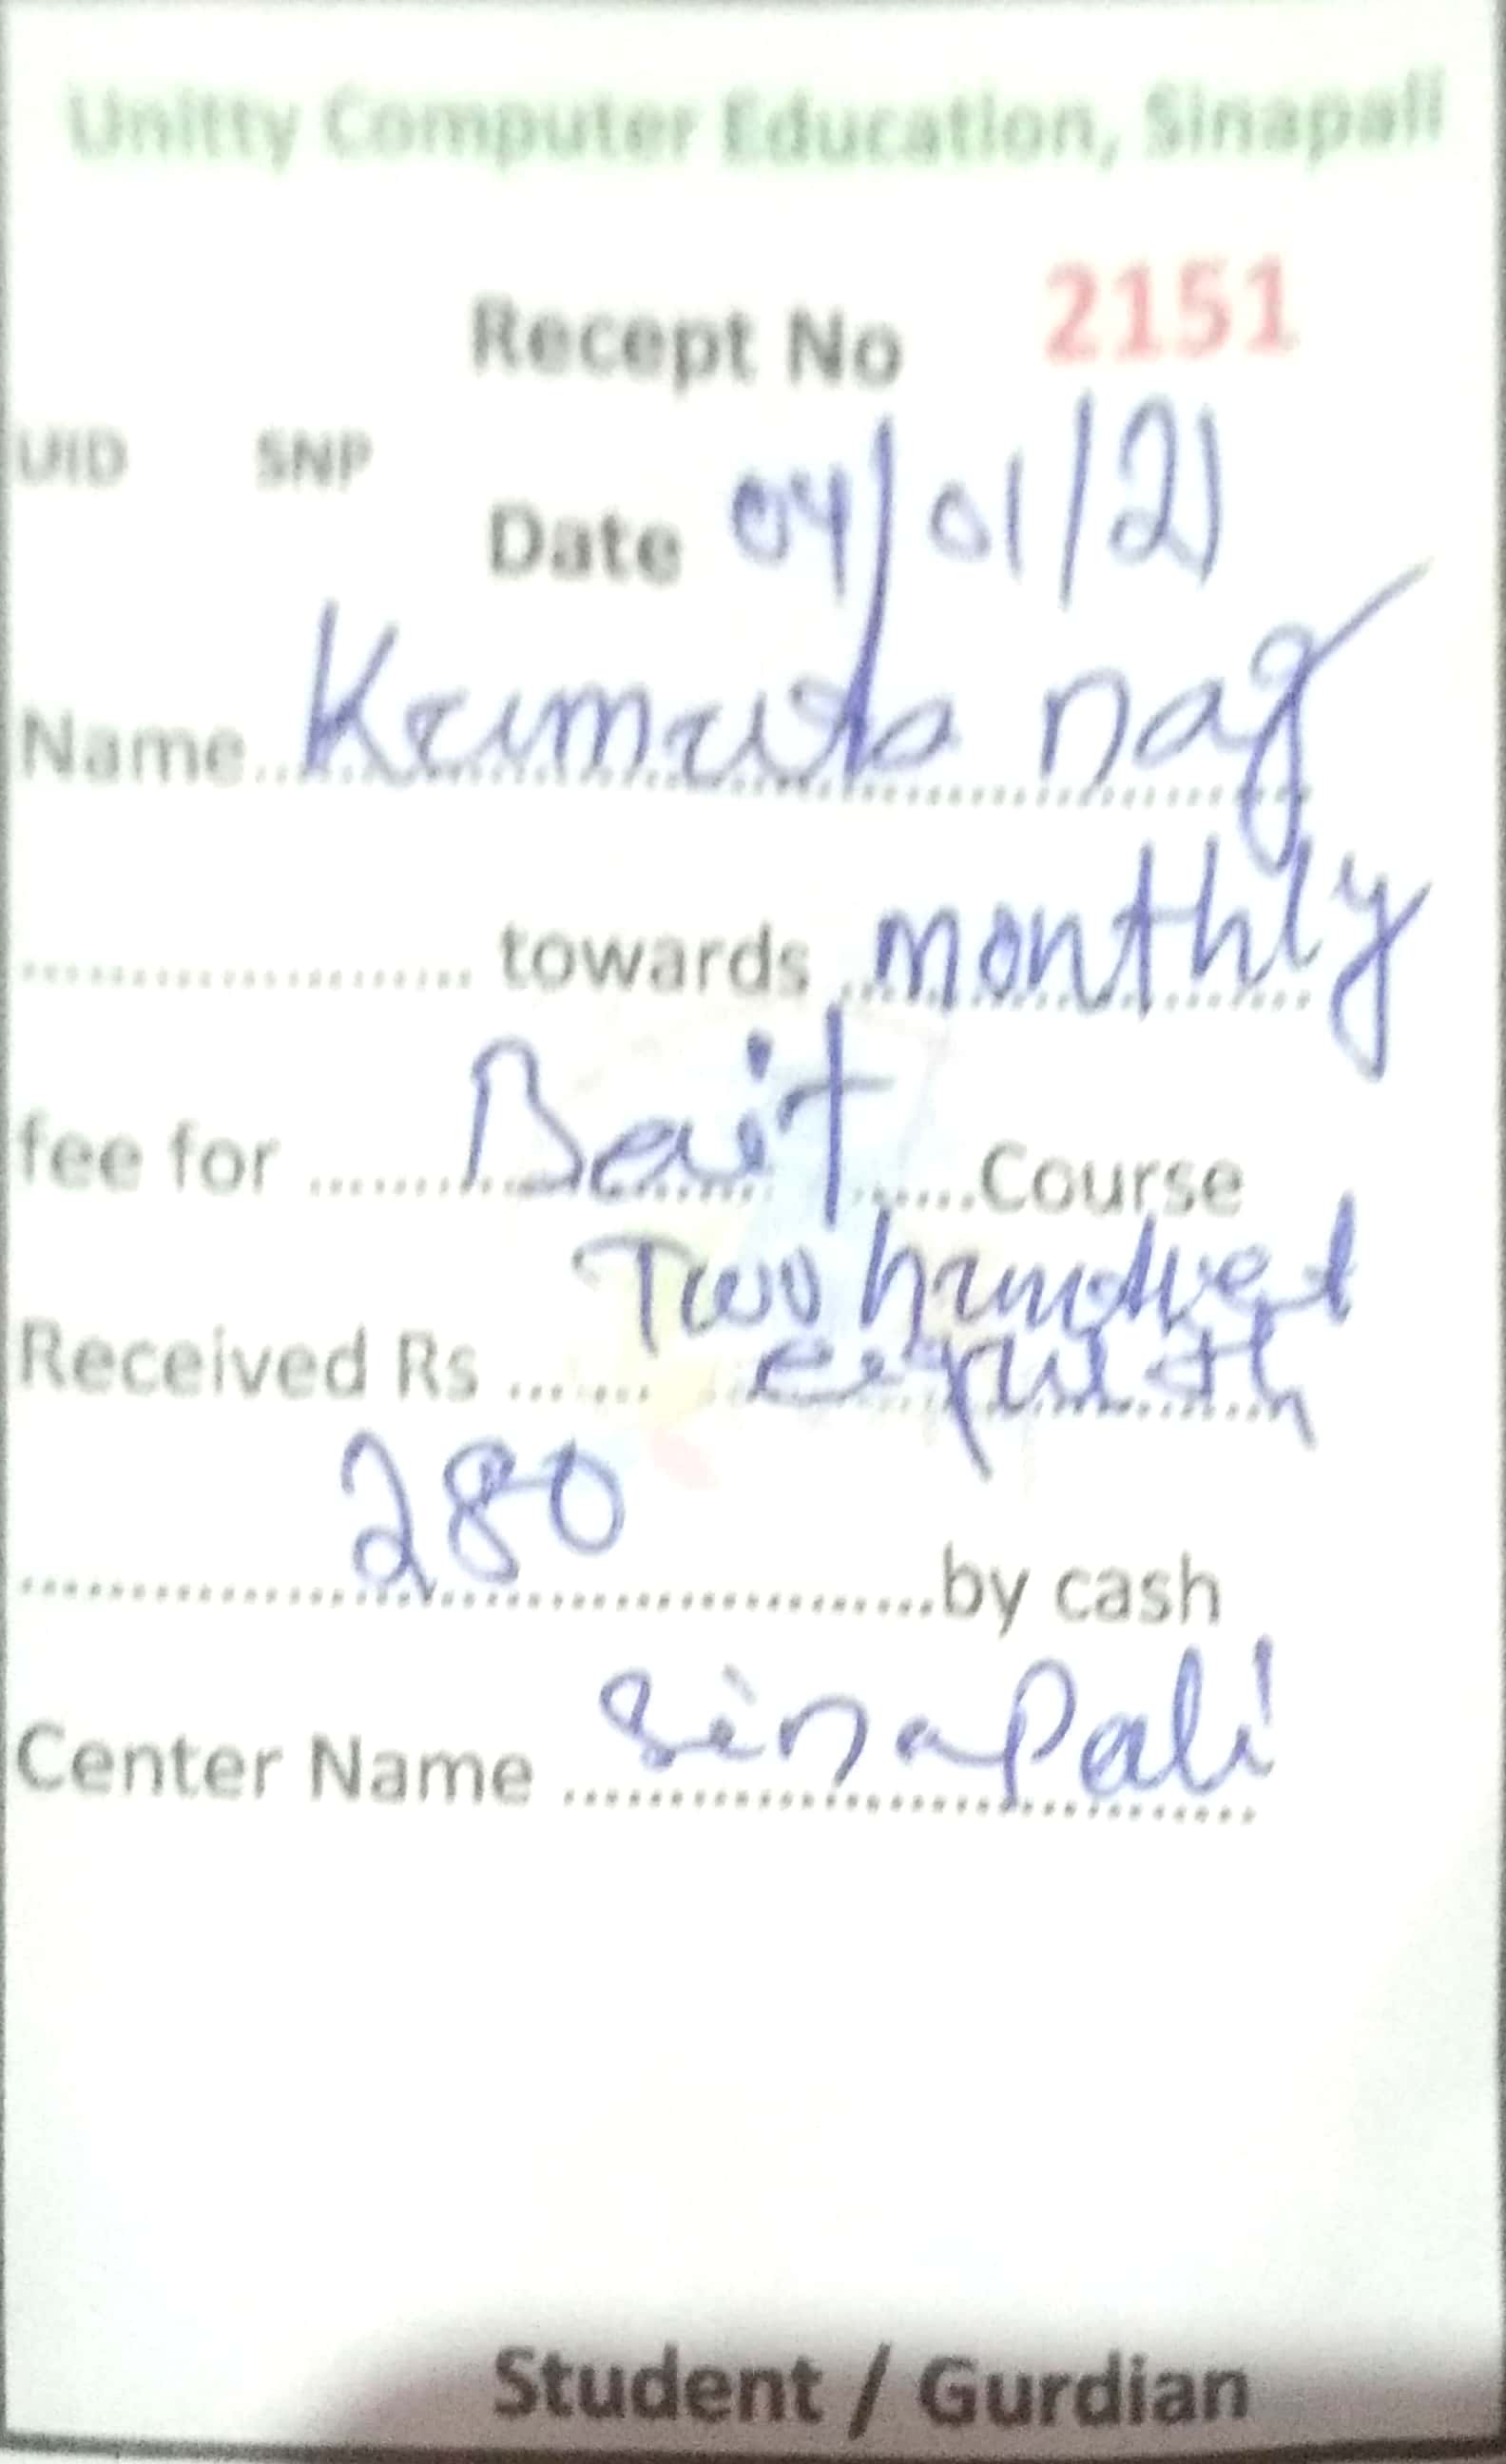 Unitty Computer Education, Sinapali
Recept No 2151
UID SNP
Date 04/01/21
Name nag
towards monthly
fee for Course
Two hundred
Received Rs
280 by cash
Center Name Sinapali
Student / Gurdian